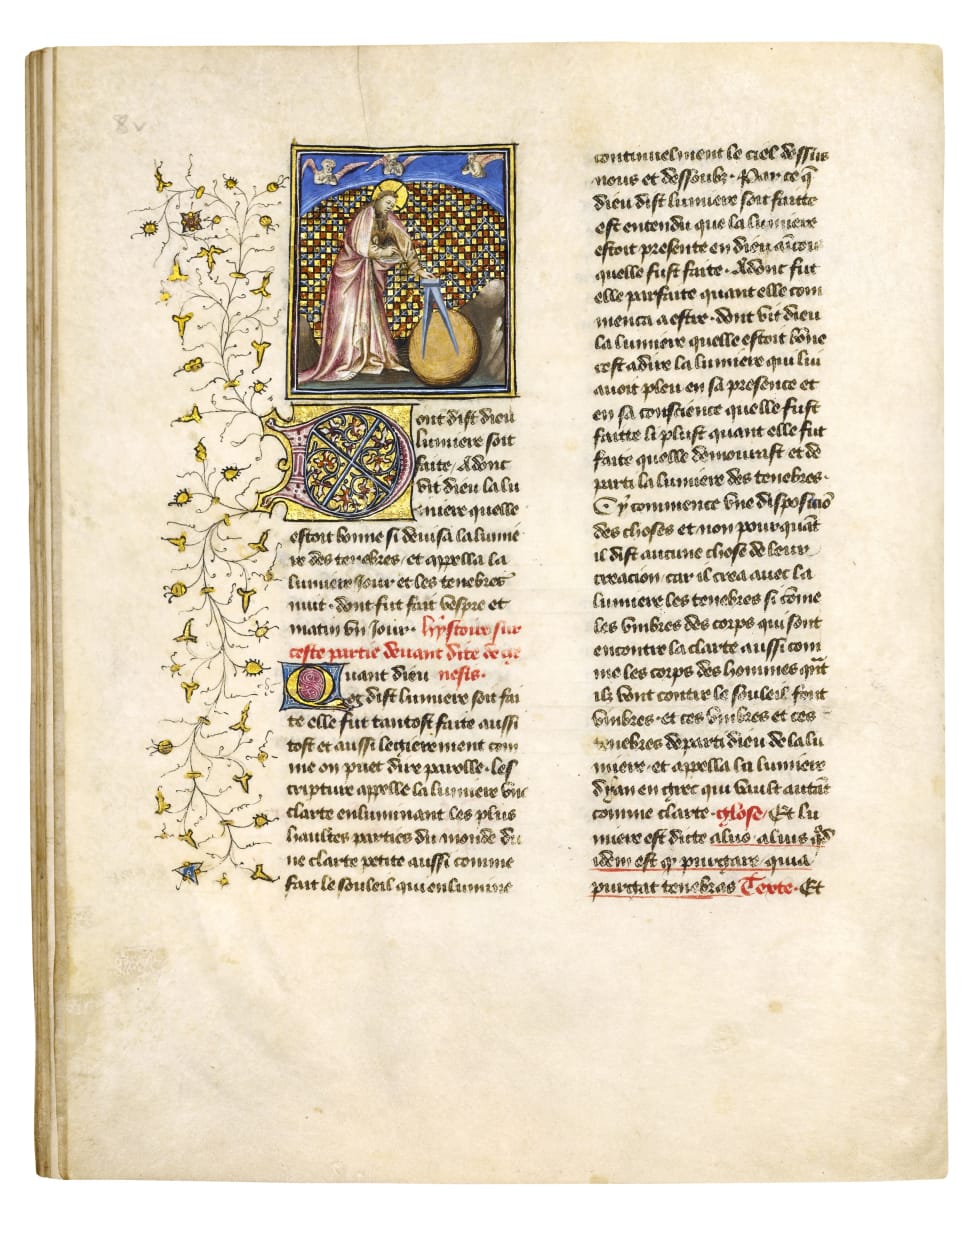 8v
Dont dist dieu
lumiere soit
faite / Adont
vit dieu la lu
miere quelle
estoit bonne si deuisa la lumie
re des tenebres / et appella la
lumiere Jour et les tenebres
nuit · dont fut fait vespre et
matin vn Jour · hystoire sur
ceste partie deuant dite de ge
Quant dieu nesis ·
dist lumiere soit fai
te elle fut tantost faite aussi
tost et aussi legierement com
me on puet dire parolle · les
cripture appelle la lumiere vne
clarte enluminant les plus
haultes parties du monde du
ne clarte petite aussi comme
fait le souleil qui enlumine
continuelment le ciel dessus
nous et dessoubz · Par ce q̄
dieu dist lumiere soit faitte
est entendu que la lumiere
estoit presente en dieu aincois
quelle fust faite · Adont fut
elle parfaite quant elle com
menca a estre · dont vit dieu
la lumiere quelle estoit bōne
cest adire la lumiere qui lui
auoit pleu en sa presence et
en sa conscience quelle fust
faitte li plust quant elle fut
faite quelle demourast et de
parti la lumiere des tenebres ·
Cy commence vne disposicio
des choses et non pourquāt
il dist aucune chose de leur
creacion / car il crea auec la
lumiere les tenebres si cōme
les vmbres des corps qui sont
encontre la clarte aussi com
me les corps des hommes qñt
ilz vont contre le souleil font
vmbres · et ces vmbres et ces
tenebres departi dieu de la lu
miere · et appella la lumiere
dyan en grec qui vault autāt
comme clarte · glose / Et lu
miere est dicte alus · aluis qd
idem est qȝ purgare quia
purgat tenebras Texte · Et